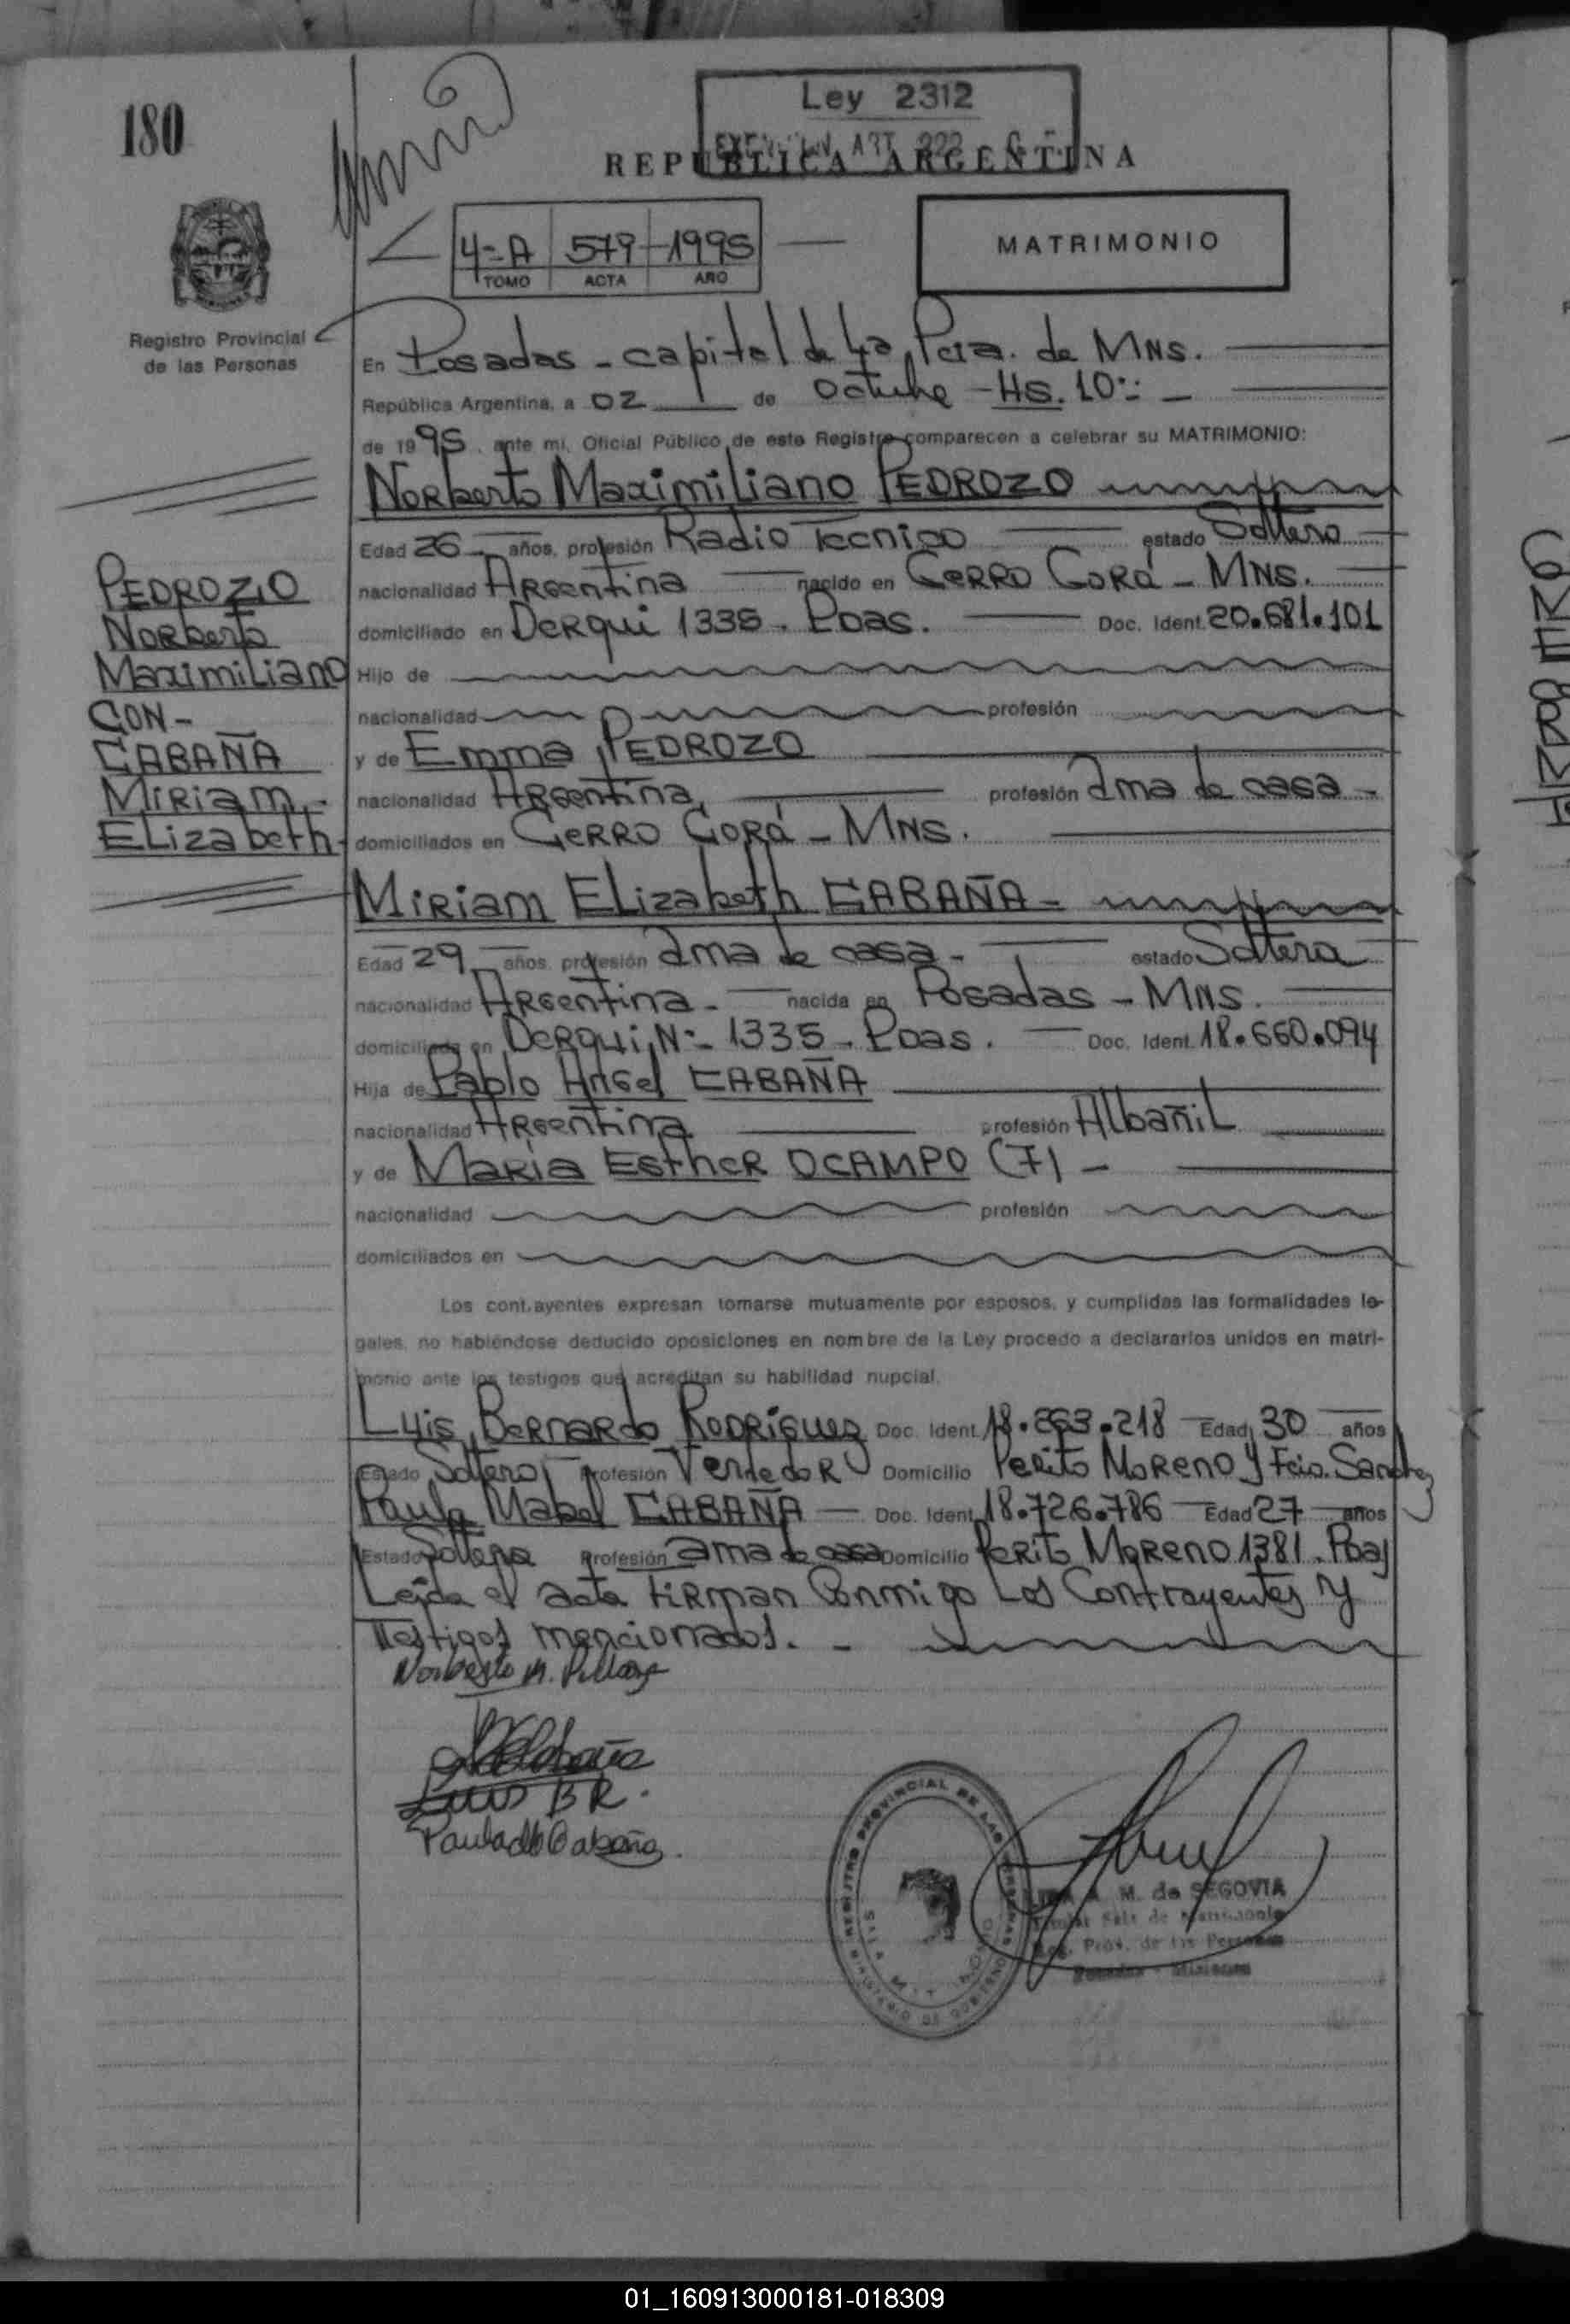 180
Ley 2312
ART 222
REPUBLICA ARGENTINA
4=A 579 1995
TOMO ACTA AÑO
MATRIMONIO
Registro Provincial
de las Personas
En Posadas - capital de la Pcia. de MNS.
República Argentina, a 02 de Octubre - HS. 10:-
de 1995, ante mi, Oficial Público de este Registro comparecen a celebrar su MATRIMONIO:
Norberto Maximiliano PEDROZO
Edad 26 años, profesión Radio Tecnico estado Soltero
nacionalidad Argentina nacido en CERRO CORÁ - MNS.
domiciliado en Derqui 1335. Pdas. Doc. Ident. 20.681.101
Hijo de
nacionalidad profesión
y de Emma PEDROZO
nacionalidad Argentina, profesión ama de casa -
domiciliados en CERRO CORÁ - MNS.
PEDROZO
Norberto
Maximiliano
CON -
CABAÑA
Miriam
Elizabeth
Miriam Elizabeth CABAÑA -
Edad 29 años, profesión ama de casa - estado Soltera
nacionalidad Argentina - nacida en Posadas - MNS.
domiciliada en Derqui N=- 1335 - Pdas. Doc. Ident. 18.660.094
Hija de Pablo Angel CABAÑA
nacionalidad Argentina profesión Albañil
y de Maria Esther OCAMPO (7) -
nacionalidad profesión
domiciliados en
Los contrayentes expresan tomarse mutuamente por esposos, y cumplidas las formalidades le-
gales, no habiéndose deducido oposiciones en nombre de la Ley procedo a declararlos unidos en matri-
monio ante los testigos que acreditan su habilidad nupcial.
Luis Bernardo Rodriguez Doc. Ident. 18.263.218 Edad 30 años
Estado Soltero profesión Vendedor Domicilio Perito Moreno y Fcio. Sanchez
Paula Mabel CABAÑA - Doc. Ident. 18.726.786 Edad 27 años
Estado Soltera Profesión ama de casa Domicilio Perito Moreno 1381. Pdas
Leida el acta firman Conmigo Los Contrayentes y
Testigos mencionados. -
Norberto M. Pedrozo
Luis B R.
Paula M Cabaña.
REGISTRO PROVINCIAL DE LAS PERSONAS
MINISTERIO DE GOBIERNO
M. de SEGOVIA
Titular Sala de Matrimonio
Reg. Prov. de las Personas
Posadas - Misiones
01_160913000181-018309